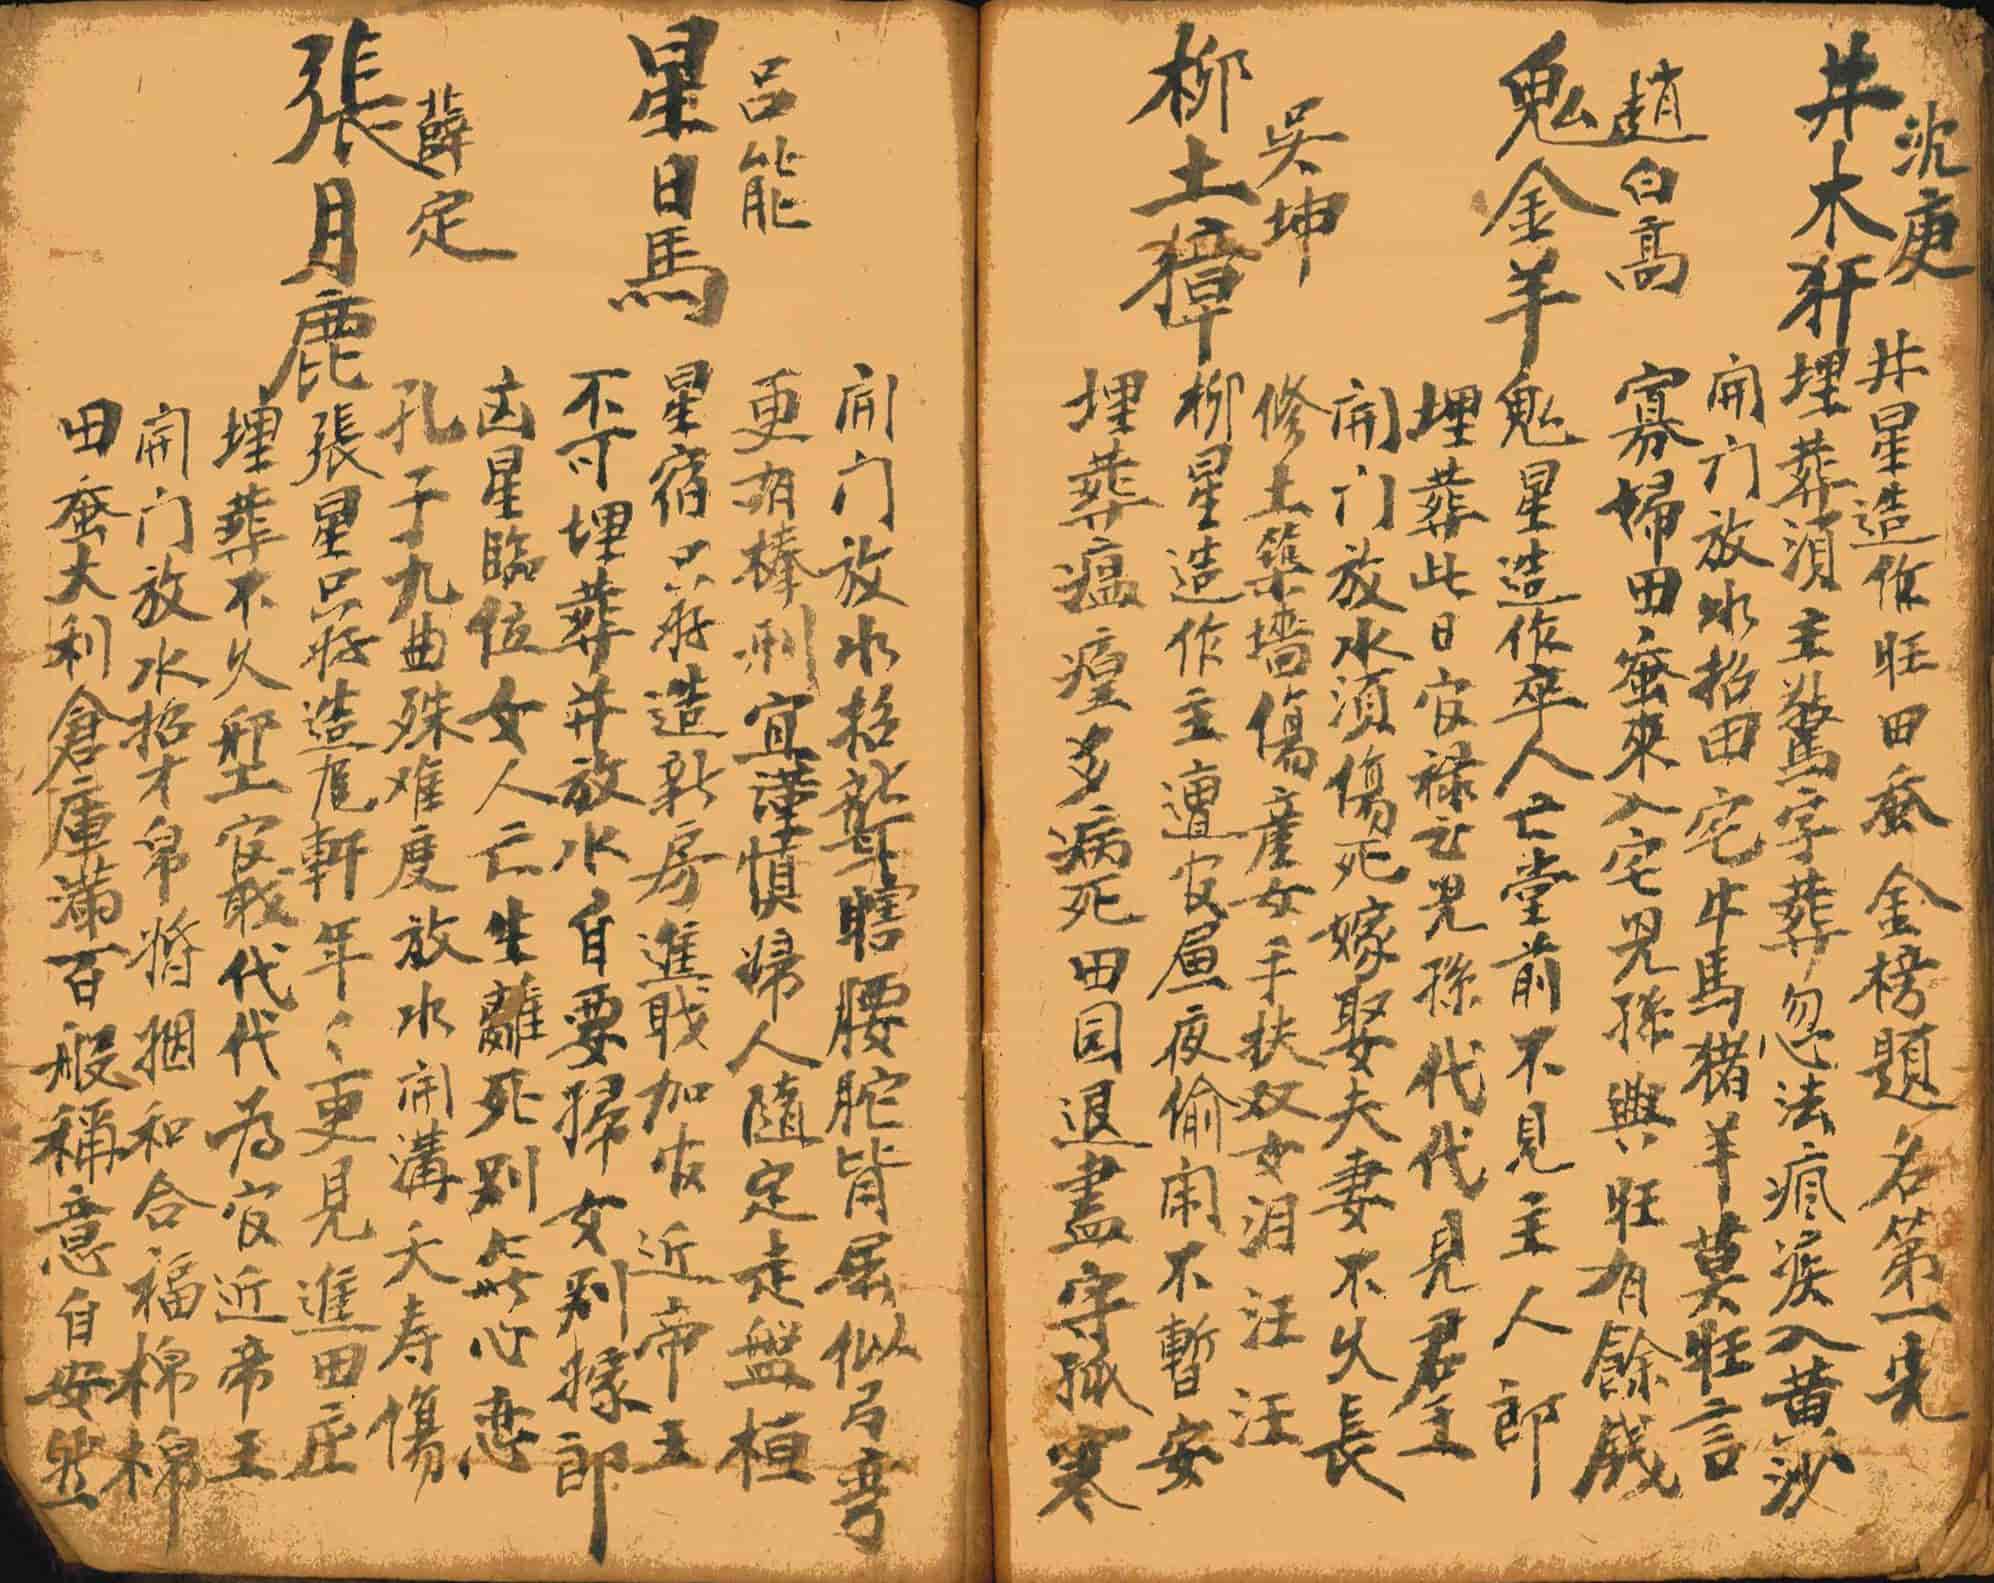 沈庚
井木犴
井星造作旺田蚕金榜題名第一先
埋葬湏主驚字葬忽忘法瘋疾入黄沙
開门放水招田宅牛馬猪羊莫旺言
寡婦田蚕來入宅児孫興旺有餘錢
趙白高
鬼金羊
鬼星造作卒人亡堂前不見主人郎
埋葬此日官禄至児孫代代見君王
開门放水湏傷死嫁娶夫妻不久長
修土築墻傷產女手扶双女泪汪汪
吳坤
柳土獐
柳星造作主遭官昼夜偷闹不暫安
埋葬瘟瘟多病死田园退盡守孤寒
開门放水招聾瞎腰駝背屈似弓弯
更有棒刑宜謹慎婦人隨定走盤桓
呂能
星日馬
星宿只好造新房進戝加官近帝王
不可埋葬并放水自要掃女别嫁郎
凶星臨位女人亡生離死别無心恋
孔子九曲殊难度放水開溝天寿傷
薛定
張月鹿
張星只好造尨軒年〻更見進田庄
埋葬不久陞官戝代代為官近帝王
開门放水招才帛婚姻和合福棉棉
田蚕大利倉庫滿百般稱意自安然